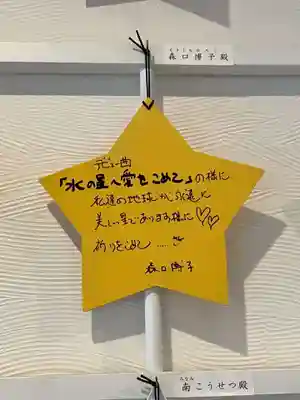 もりぐちひろこ
森口博子殿
デビュー曲
「水の星へ愛をこめて」の様に
私達の地球が永遠に
美しい星であります様に♡♡
祈りをこめて……
森口博子
みなみ
南こうせつ殿